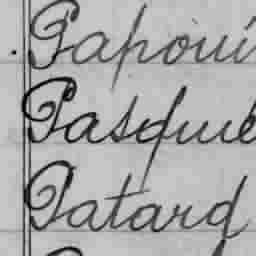 Papoui
Pasqué
Patard